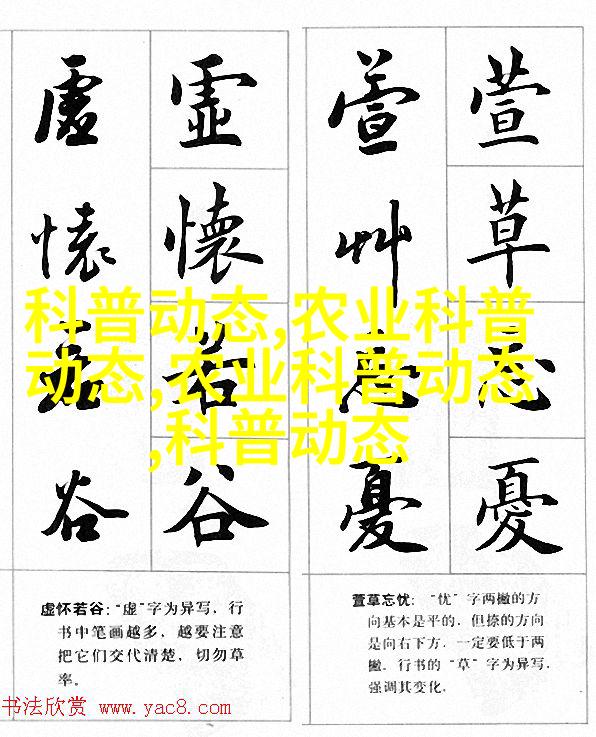 虚 虚 萱 萱
懷 懷 草 草
若 若 忘 忘
谷 谷 憂 憂
科普动态,农业科普
动态,农业科普动态
,科普动态
虚怀若谷:“虚”字为异写,行
书中笔画越多,越要注意
把它们交代清楚,切勿草
率。
萱草忘忧:“忧”字两撇的方
向基本是平的,但捺的方向
是向右下方,一定要低于两
撇。行书的“草”字为异写,
强调其变化。
书法欣赏 www.yac8.com